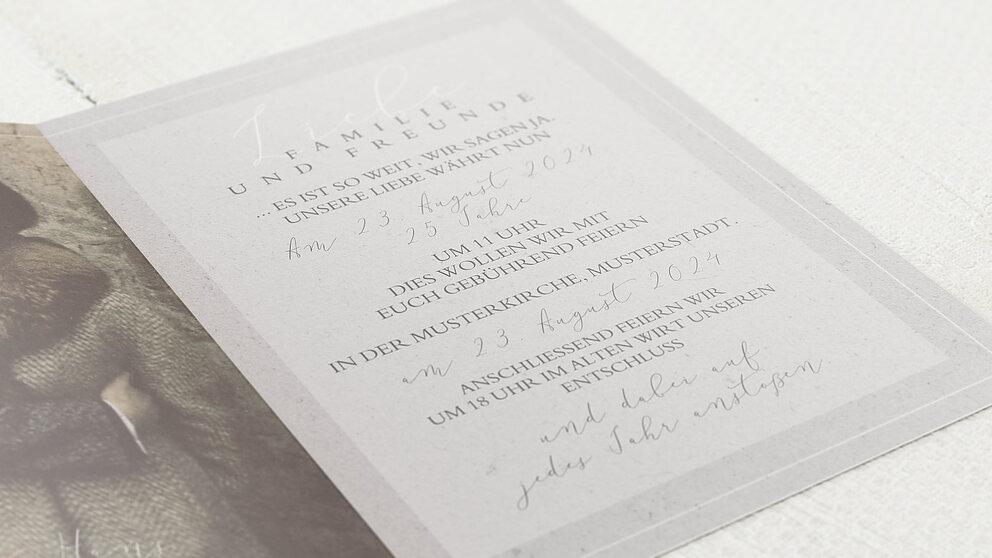 Liebe
FAMILIE
UND FREUNDE
... ES IST SO WEIT, WIR SAGEN JA.
UNSERE LIEBE WÄHRT NUN
Am 23. August 2024
25 Jahre
UM 11 UHR
DIES WOLLEN WIR MIT
EUCH GEBÜHREND FEIERN
IN DER MUSTERKIRCHE, MUSTERSTADT.
am 23. August 2024
ANSCHLIESSEND FEIERN WIR
UM 18 UHR IM ALTEN WIRT UNSEREN
ENTSCHLUSS
und dabei auf
jedes Jahr anstoßen.
Hans